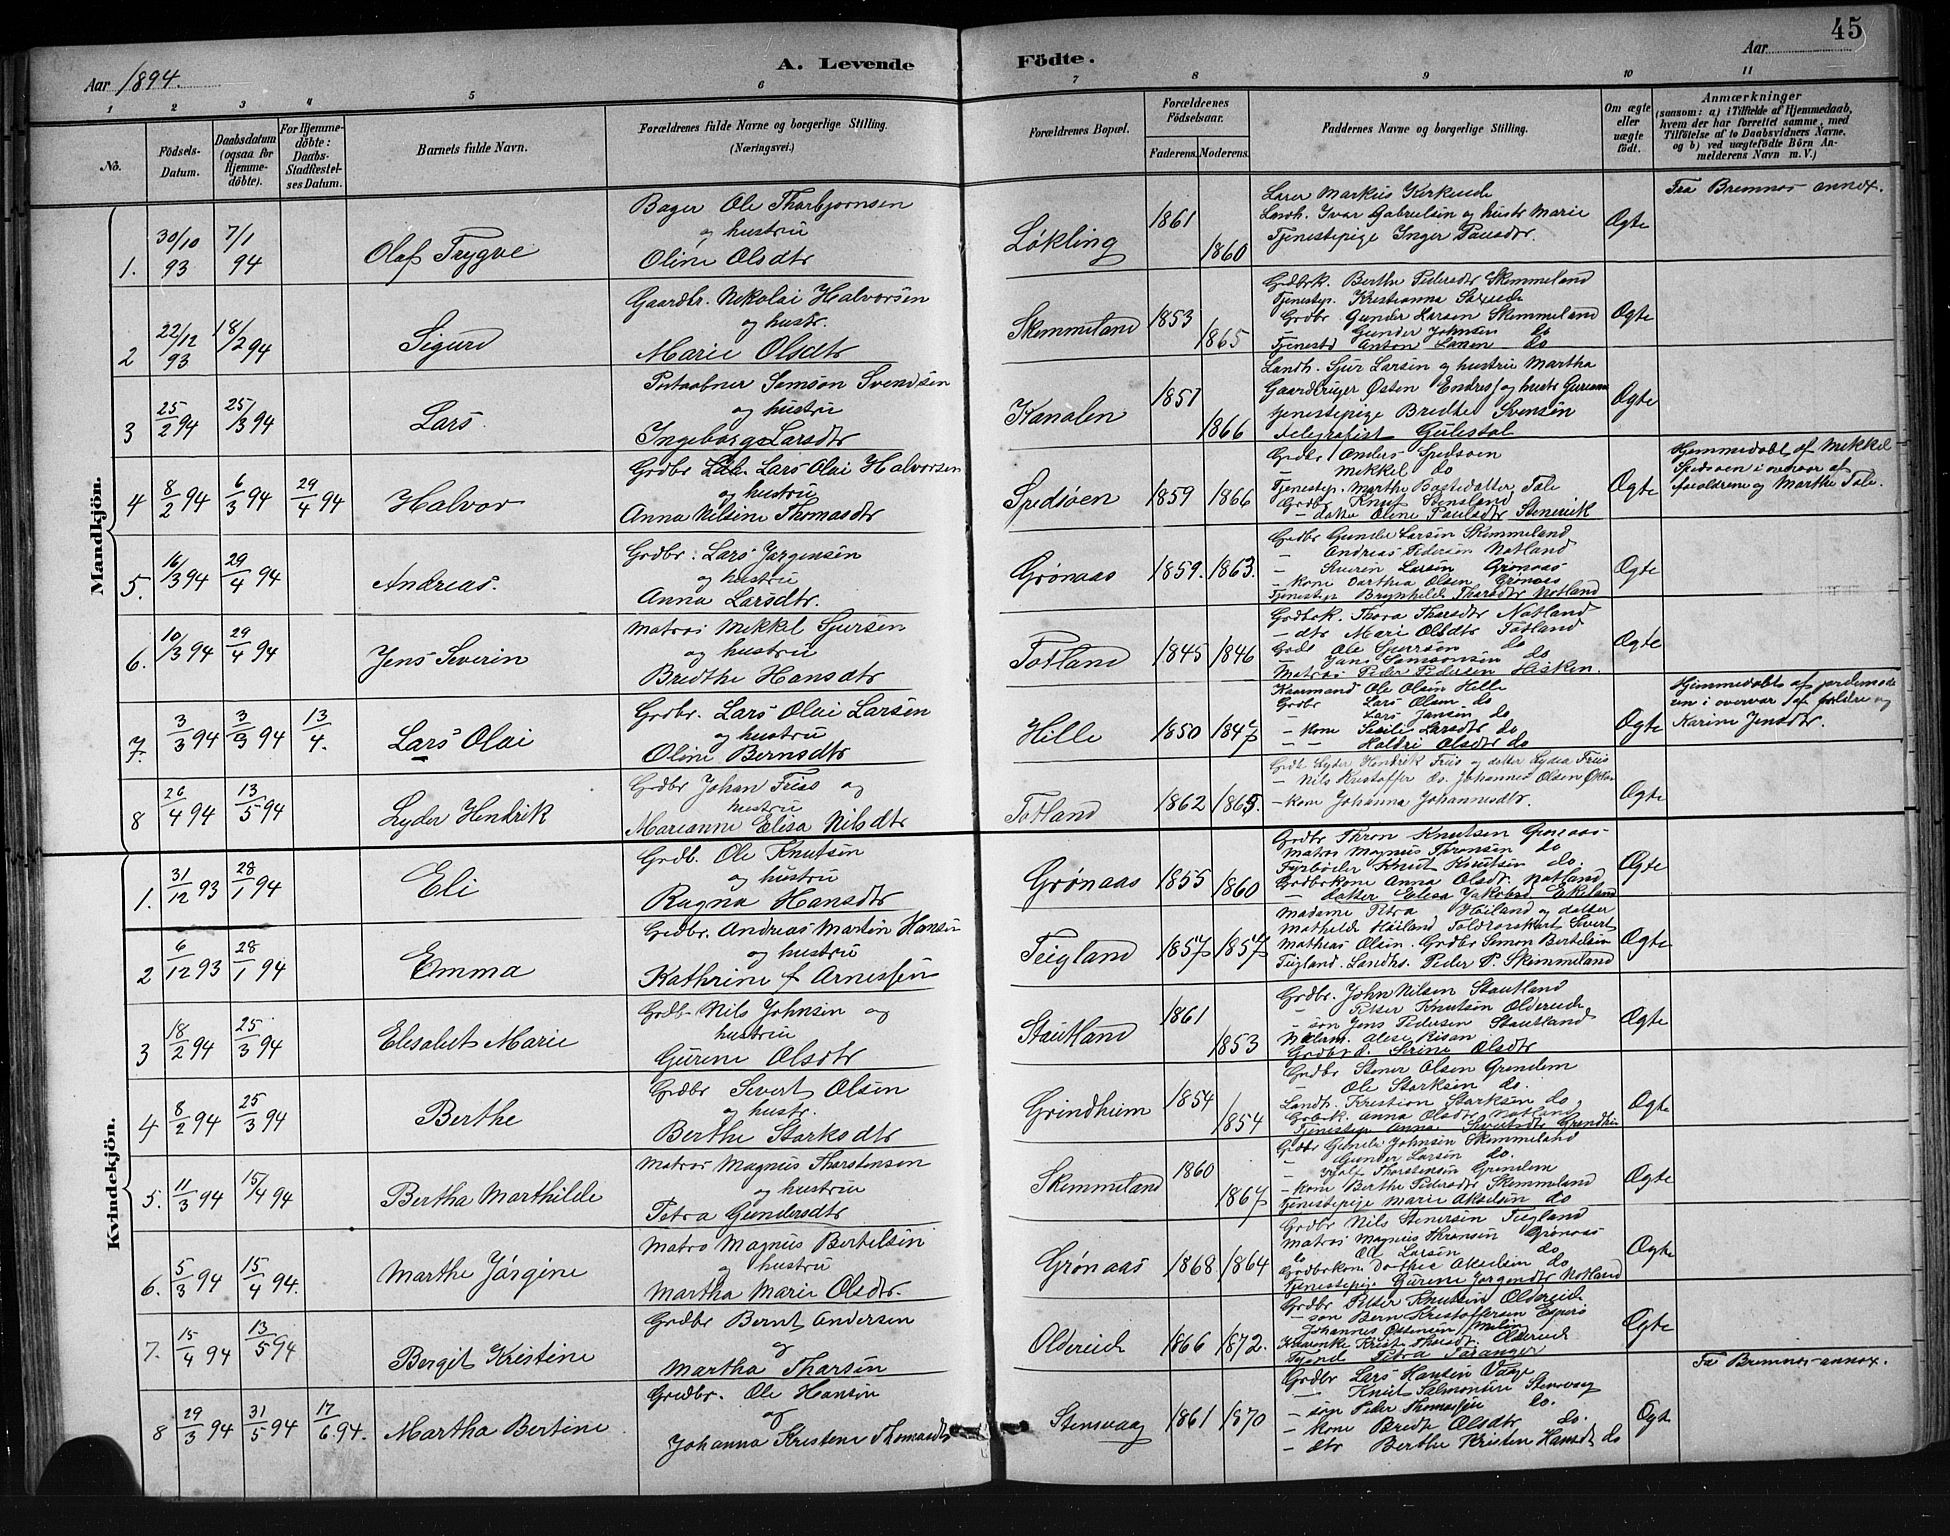 45
Aar 1894.
A. Levende Födte.
Aar
1 2 3 4 5 6 7 8 9 10 11
No.
Födsels-Datum.
Daabsdatum (ogsaa for Hjemme-döbte).
For Hjemme-döbte: Daabs-Stadfæstel-ses Datum.
Barnets fulde Navn.
Forældrenes fulde Navne og borgerlige Stilling. (Næringsvei.)
Forældrenes Bopæl.
Forældrenes Födselsaar.
Faderens. Moderens.
Faddernes Navne og borgerlige Stilling.
Om ægte eller uægte födt.
Anmærkninger (saasom: a) i Tilfælde af Hjemmedaab, hvem der har forrettet samme, med Tilföielse af to Daabsvidners Navne, og b) ved uægtefödte Börn An-melderens Navn m. V.)
Mandkjön.
1. 30/10 93 7/1 94 Olaf Trygve
Bager Ole Thorbjørnsen
og hustru
Oline Olsdtr
Løkling 1861 1860
Lærer Markus
Landh. Ivar Gabrielsen og hustr Marie
Tjenestepige Inger Paulsdtr.
Ægte
Fra Bremnes annex.
2 22/12 93 18/2 94 Sigurd
Gaardbr. Nikolai Halvorsen
og hustr.
Marie Olsdtr
Skimmeland 1853 1865
Grdbrk. Berthe Pedersdtr Skimmeland
Tjenestep. Kristianna
Grdbr. Gunder Larsen Skimmeland
— Gunder Johnsen do
Tjenestd Anton Larsen do
Ægte
3 25/2 94 25/3 94 Lars
Postaabner Samson Svendsen
og hustru
Ingeborg Larsdtr
Kanalen 1851 1866
Landh. Sjur Larsen og hustru Martha
Gaardbruger Østen Endres og hustr
Tjenestepige Bredthe Svensen
Telegrafist
Ægte
4 8/2 94 6/3 94 29/4 94 Halvor
Grdbr Lars Olai Halvorsen
og hustru
Anna Nilsine Thomasdtr
Spidsøen 1859 1866
Grdbr Anders Spidsøen
— Mikkel do
Tjenestep. Marthe
Grdbr. Knut
— datter Oline Paulsdtr
Ægte
Hjemmedøbt af Mikkel
Spidsøen i overvær af
forældrene og Marthe Tale.
5. 16/3 94 29/4 94 Andreas.
Grdbr. Lars Jørgensen
og hustru
Anna Larsdtr.
Grønaas 1859. 1863.
Grdbr Gunder Larsen Skimmeland
— Andreas Pedersen Notland
— Severin Larsen Grønaas
— kone Dorthea Olsen Grønaas
Tjenestep Brynhilde Tharsdtr Notland
Ægte
6. 10/3 94 29/4 94 Jens Severin
Matros Mikkel Sjursen
og hustru
Bredthe Hansdtr
Totland 1845 1846
Grdbrk. Thora Tharsdtr Notland
— dtr Mari Olsdtr Totland
Grdb Ole Sjursen do
— Jens Samsonsen do
Matros Peder Pedersen Hisken.
Ægte
7. 3/3 94 3/3 94 13/4. Lars Olai
Grdbr. Lars Olai Larsen
og hustru
Oline Berntsdtr
Hille 1850 1847
Ole Olsen Hille
Grdbr Lars Olsen do
— Lars Jansen do
— kone Sesilie Larsdtr do
— — Holdri Olsdtr do
Ægte
Hjemmedøbt af jordemode
ren i overvær af foreldre og
Karine Jensdtr.
8 26/4 94 13/5 94 Lyder Hendrik
Grdbr Johan Friis og
hustru
Marianne Elisa Nilsdtr
Totland 1862 1865.
Grdb. Lyder Hendrik Friis og datter Lydea Friis
— Nils Kristoffer do. Johannes Olsen
— kone Johanna Johannesdtr.
Ægte
Kvindekjön.
1. 31/12 93 28/1 94 Eli
Grdb. Ole Knutsen
og hustru
Ragna Hansdtr
Grønaas 1855 1860
Grdbr Thron Knutsen Grønaas
Matros Magnus Thronsen do
Fyrbøder Knut Knutsen do.
Grdbrkone Anna Olsdr. Notland
— datter Elisa Jakobsd Ekeland
Ægte
2 6/12 93 28/1 94 Emma
Grdbr. Andreas Martin Hansen
og hustru
Kathrine f Arnessen
Teigland 1857 1857
Madame Petra Høiland og datter
Mathilde Høiland Sivert
Mathias Olsen. Grdbr Simon Bertelsen
Teigland. Landhs. Peder P. Skimmeland
Ægte
3 18/2 94 25/3 94 Elisabet Marie
Grdb. Nils Johnsen og
hustru
Gurene Olsdtr
Stautland 1861 1853
Grdbr. John Nilsen Stautland
— Peter Knutsen Oldereide
— søn Jens Pedersen Stautland
Grdbr d. Serine Olsdtr
Ægte
4 8/2 94 25/3 94 Berthe
Grdbr Sivert Olsen
og hustr.
Berthe Storksdtr
Grindheim 1854 1854
Grdbr Stener Olsen Grindem
— Ole Storksen do.
Landh. Kristian Storksen do
Grdbrk. Anna Olsdtr Notland
Tjenestep. Anna Sivertsdtr Grindheim
Ægte
5. 11/3 94 15/4 94 Bertha Marthilde
Matros Magnus Tharstensen
og hustru
Petra Gundersdtr
Skimmeland 1860 1867
Grdbr Gunder Johnsen Skimmeland
— Gunder Larsen do.
Tharstensen Grindem
— kone Berthe Pedersdtr Skimmeland
Tjenestepige Marie Akselsen do
Ægte
6. 5/3 94 15/4 94. Marthe Jørgine
Matro Magnus Bertelsen
og hustru
Martha Marie Olsdtr.
Grønaas 1868 1864
Grdbr Nils Stenersen Teigland
Matros Magnus Thronsen Grønaas
do Ole Larsen do
Grdbrkone Dorthee Akselsen do
Tjenestepige Gurene Jørgendtr Notland
Ægte
7. 15/4 94 13/5 94 Bergit Kristine
Grdbr Bernt Andersen
og
Martha Tharsen
Oldereide 1866 1872.
Grdbr Peter Knutsen Oldereide
— søn Bern Kristoffersen
Johannes Østensen
Tharsdt. Oldereide
Petra
Ægte
8 29/3 94 31/5 94 17/6 94. Martha Bertine
Grdbr. Ole Hansen
og
Johanna Kristene Thomasdtr
Stensvaag 1861 1870
Grdbr Lars Hansen Vaage
— Knut Salmonsen Stensvaag
— søn Peder Thomassen do.
— kone Bredte Olsdtr do.
— dtr Berthe Kristen Hansdt do
Ægte
Fa Bremnes annex.